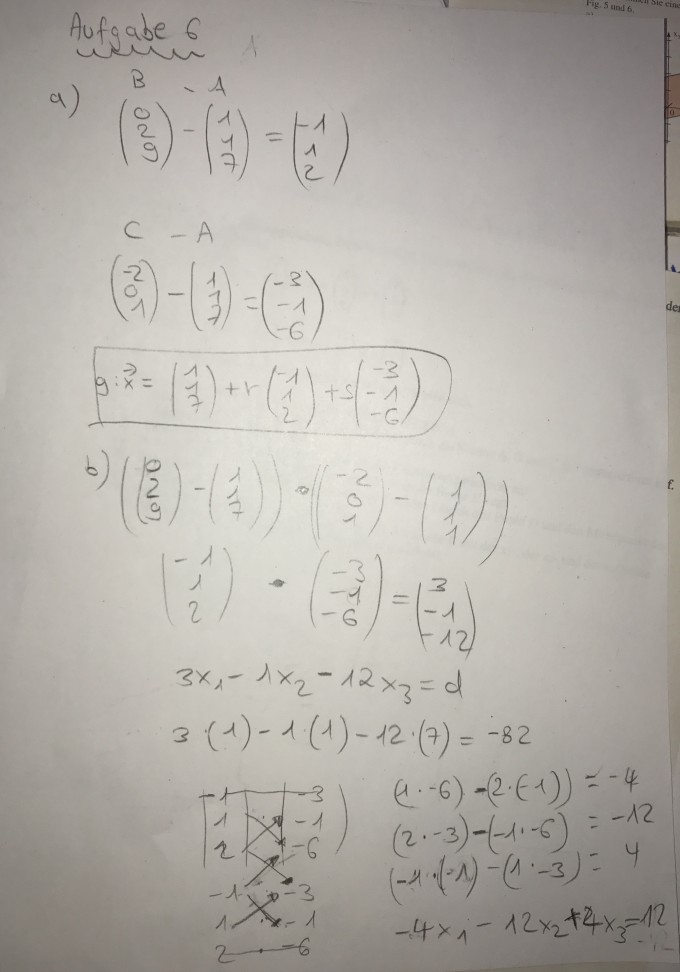 Fig. 5 und 6.
Aufgabe 6
B - A
a) (0 2 9) - (1 1 7) = (-1 1 2)
C - A
(-2 0 1) - (1 1 7) = (-3 -1 -6)
g: x⃗ = (1 1 7) + r (-1 1 2) + s (-3 -1 -6)
b) ((0 2 9) - (1 1 7)) • ((-2 0 1) - (1 1 1))
(-1 1 2) • (-3 -1 -6) = (3 -1 -12)
3x₁ - 1x₂ - 12x₃ = d
3·(1) - 1·(1) - 12·(7) = -82
-1 -3
1 -1
2 -6
-1 -3
1 -1
2 -6
(1·-6) - (2·(-1)) = -4
(2·-3) - (-1·-6) = -12
(-1·(-1) - (1·-3) = 4
-4x₁ - 12x₂ + 4x₃ = 12